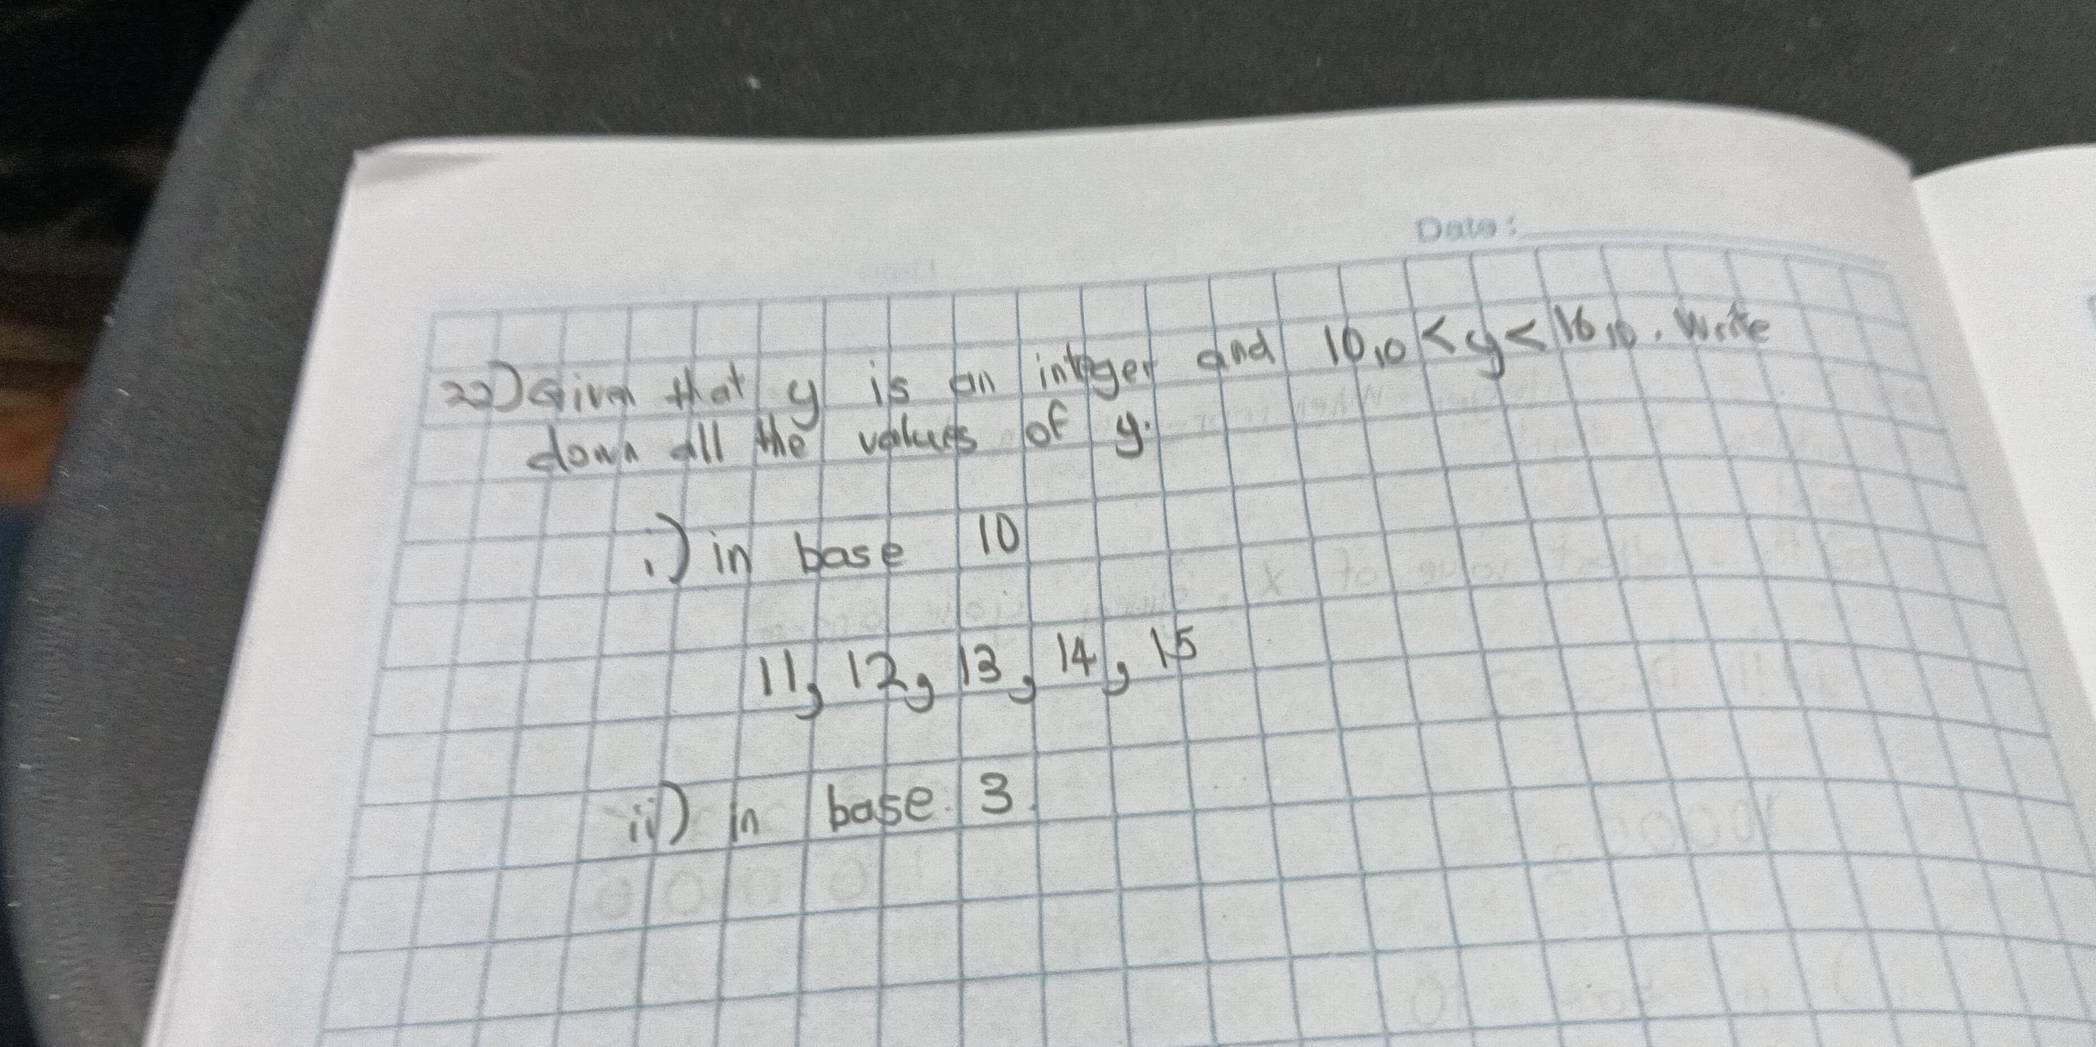 Date:
22) Given that y is an integer and 10₁₀ < y < 16₁₀. Write
down all the values of y.
i.) in base 10
11, 12, 13, 14, 15
ii) in base 3